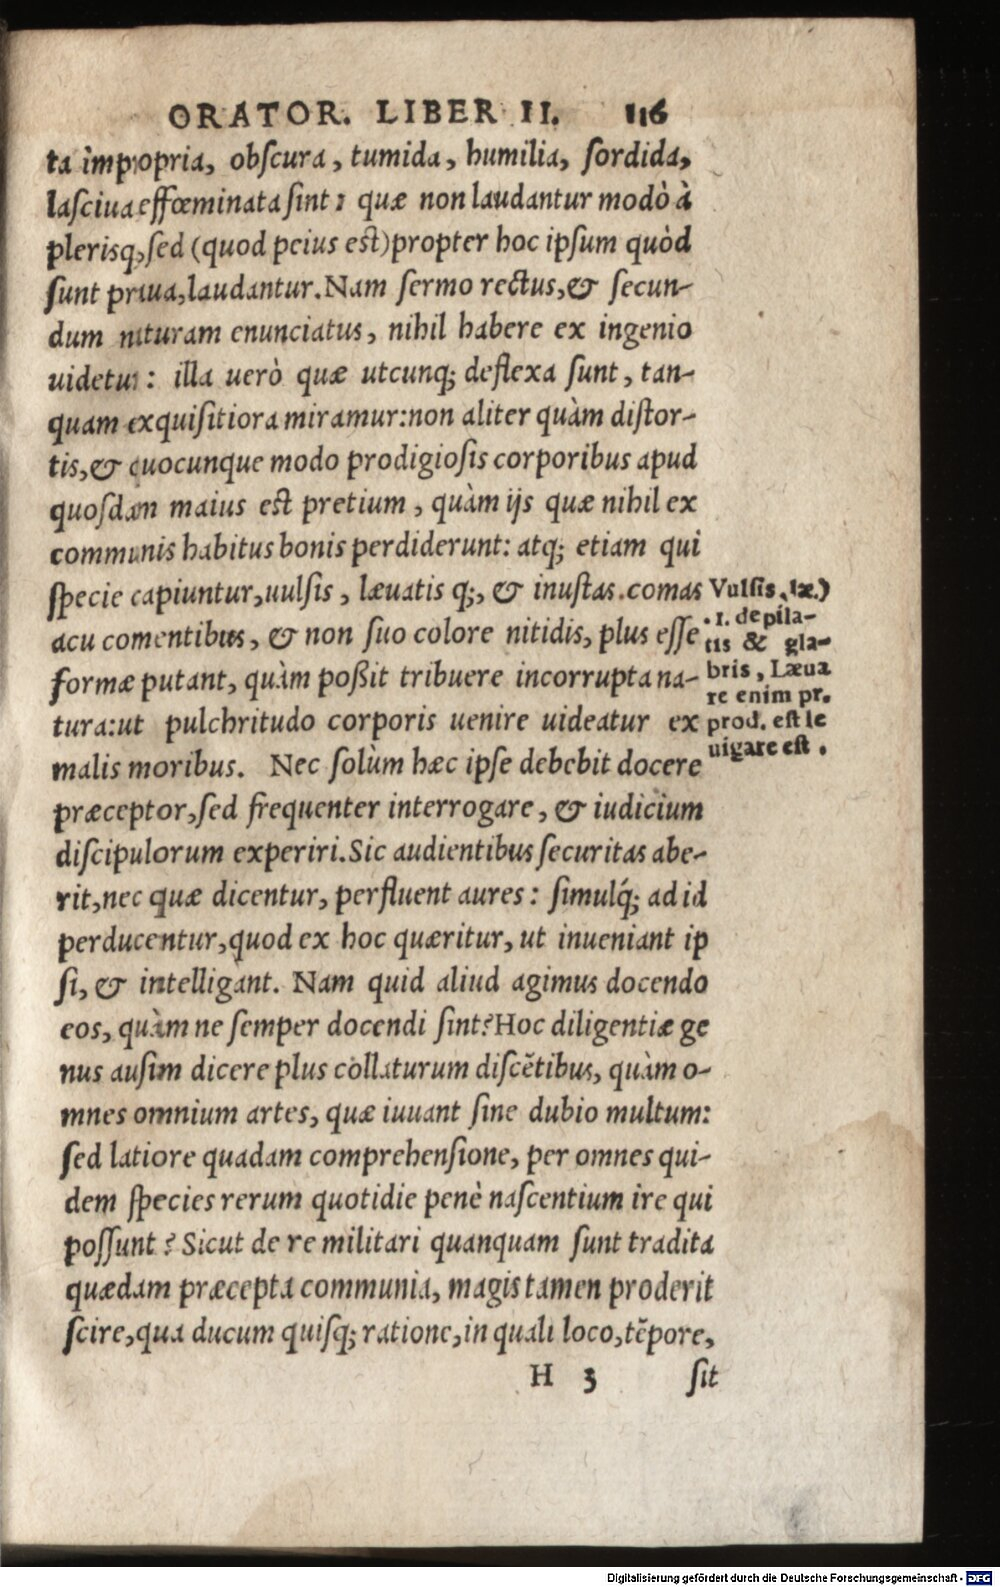 ORATOR. LIBER II. 116
ta impropria, obſcura, tumida, humilia, ſordida,
laſciua effœminata ſint: quæ non laudantur modò à
plerisq;, ſed (quod peius eſt) propter hoc ipſum quòd
ſunt praua, laudantur. Nam ſermo rectus, & ſecun-
dum naturam enunciatus, nihil habere ex ingenio
uidetur: illa uerò quæ utcunq; deflexa ſunt, tan-
quam exquiſitiora miramur: non aliter quàm diſtor-
tis, & quocunque modo prodigioſis corporibus apud
quoſdam maius eſt pretium, quàm ijs quæ nihil ex
communis habitus bonis perdiderunt: atq; etiam qui
ſpecie capiuntur, uulſis, læuatis q;, & inuſtas comas
acu comentibus, & non ſuo colore nitidis, plus eſſe
formæ putant, quàm poßit tribuere incorrupta na-
tura: ut pulchritudo corporis uenire uideatur ex
malis moribus. Nec ſolùm hæc ipſe debebit docere
præceptor, ſed frequenter interrogare, & iudicium
diſcipulorum experiri. Sic audientibus ſecuritas abe-
rit, nec quæ dicentur, perfluent aures: ſimulq́; ad id
perducentur, quod ex hoc quæritur, ut inueniant ip
ſi, & intelligant. Nam quid aliud agimus docendo
eos, quàm ne ſemper docendi ſint? Hoc diligentiæ ge
nus auſim dicere plus collaturum diſcẽtibus, quàm o-
mnes omnium artes, quæ iuuant ſine dubio multum:
ſed latiore quadam comprehenſione, per omnes qui-
dem ſpecies rerum quotidie penè naſcentium ire qui
poſſunt? Sicut de re militari quanquam ſunt tradita
quædam præcepta communia, magis tamen proderit
ſcire, qua ducum quiſq; ratione, in quali loco, tẽpore,
H 3 ſit
Vulſis, læ.)
.i. depila-
tis & gla-
bris, Læua
re enim pr.
prod. eſt le
uigare eſt.
Digitalisierung gefördert durch die Deutsche Forschungsgemeinschaft - DFG